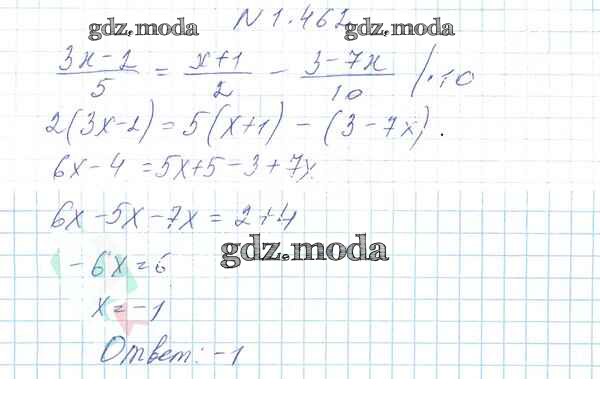 N 1.462
gdz.moda gdz.moda
(3x-2)/5 = (x+1)/2 - (3-7x)/10 /·10
2(3x-2) = 5(x+1) - (3-7x).
6x-4 = 5x+5-3+7x
6x-5x-7x = 2+4
gdz.moda
-6x=6
x=-1
Ответ: -1